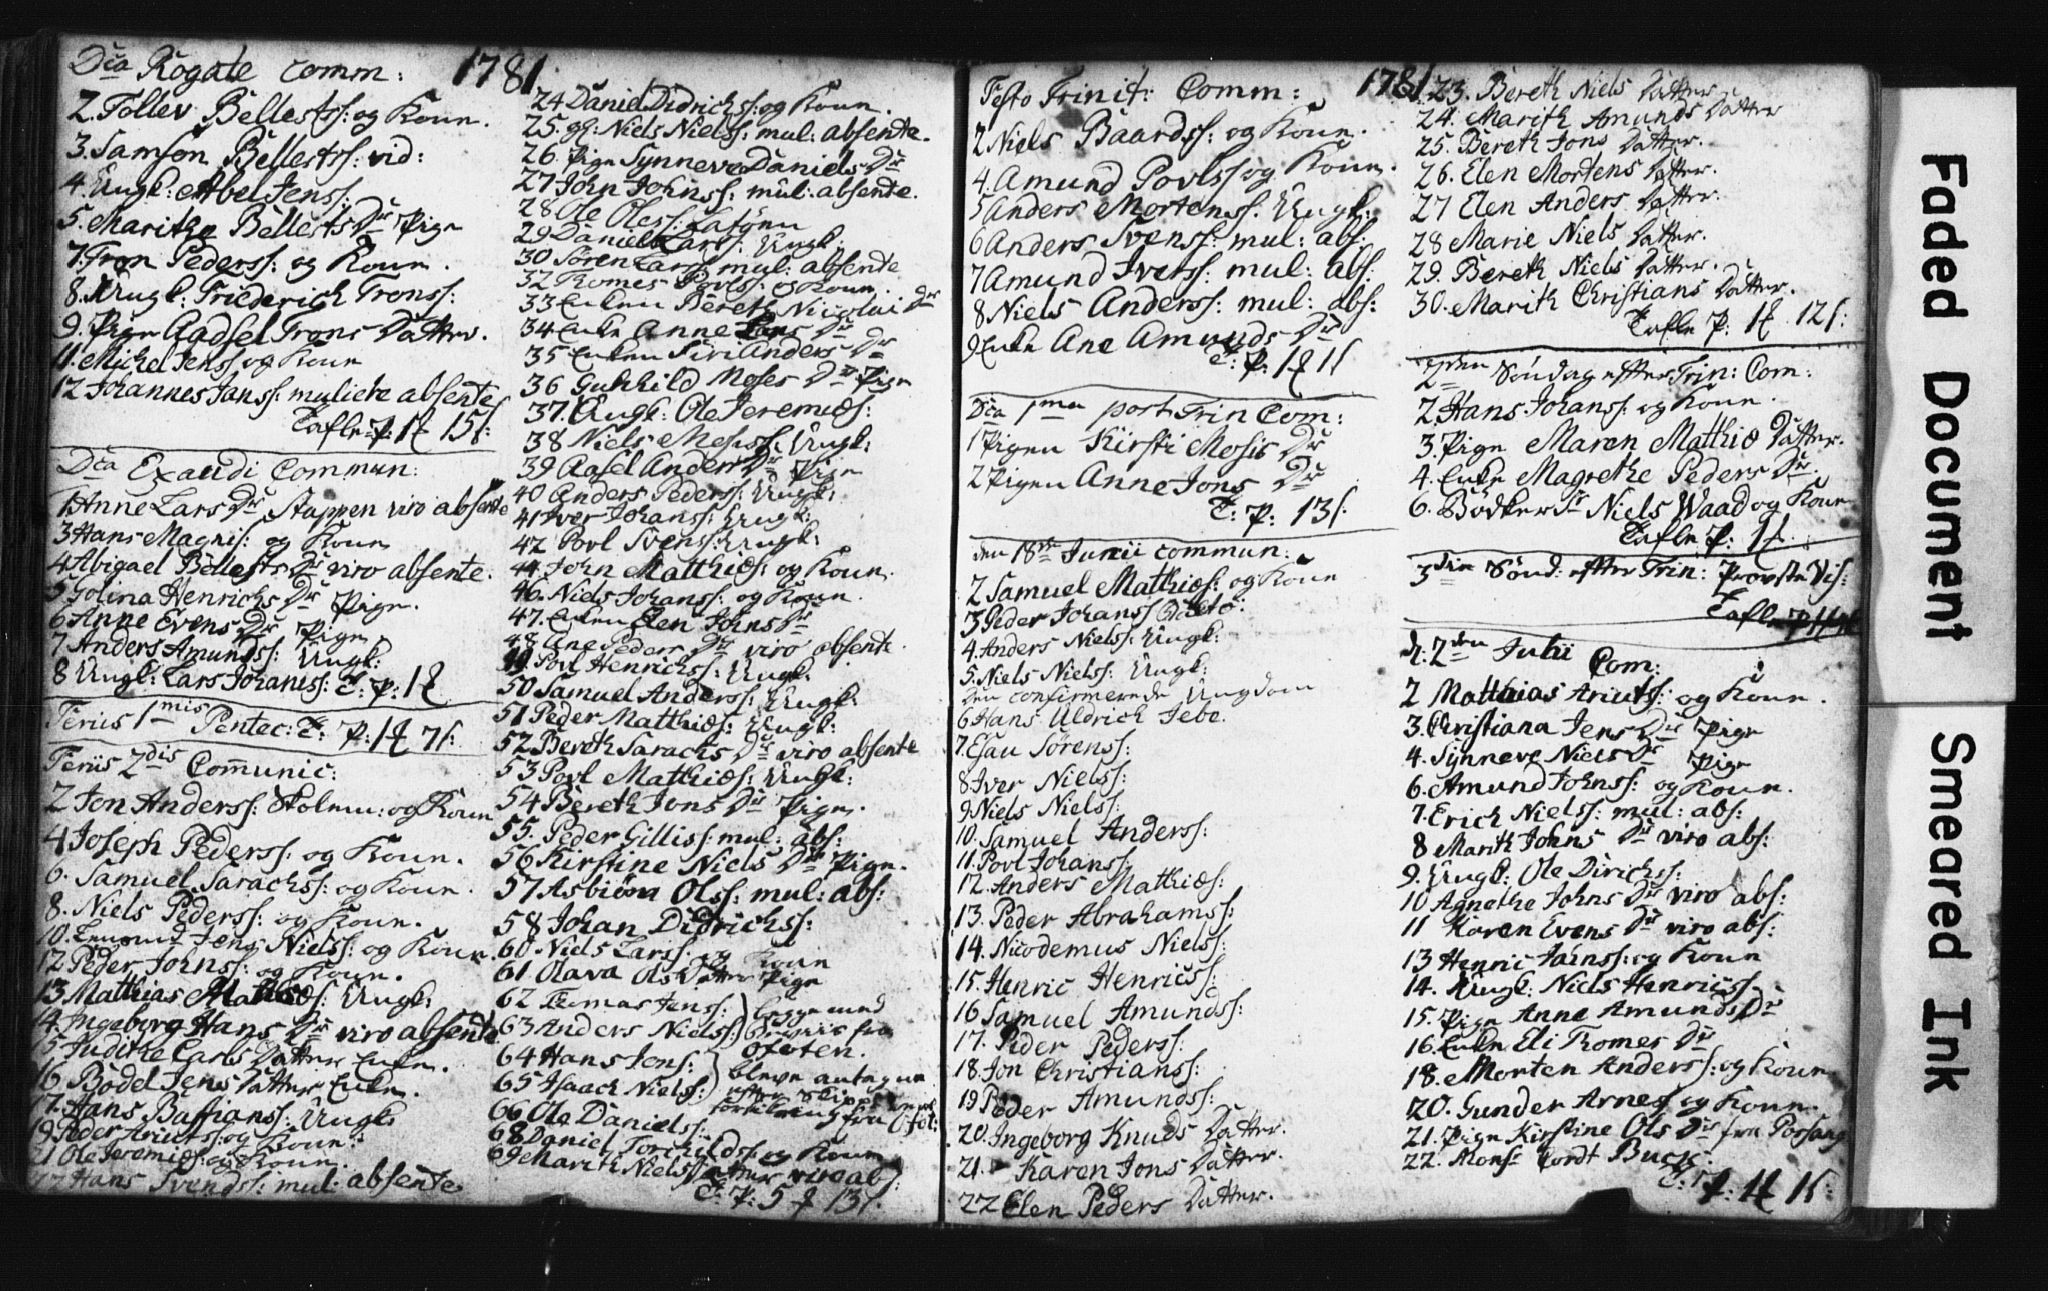 Dca Rogate comm: 1781.
2. Tollev Bellestss: og Kone.
3. Samson Bellestss: vid:
4. Ungk: Abel Jenss:
5. Marithe Bellests Dr Pige
7. Tron Pederss: og Kone.
8. Ungk: Friederich Tronss:
9. Pige Aadsel Trons Datter.
11. Michel Jenss og Kone
12 Johannes Janss: muliere absente
Tafle p: 1 15 s:
Dca Exaudi Commun:
1. Anne Lars Dr Stappen viro absente
3 Hans Magnis: og Kone
4 Abigael Bellests Dr viro absente.
5 Golina Henrichs Dr Pige.
6 Anne Evens Dr Pige
7 Anders Amundss: Ungk:
8 Ungk: Lars Johans: T: p: 1
Feriis 1mis Pentec: T: p: 1 7 s:
Feriis 2dis Communic:
2 Jon Anderss: Stolen: og Kone
4 Joseph Pederss: og Kone.
6. Samuel Sarachss: og Kone.
8. Niels Pederss: og Kone.
10. Jens Nielss: og Kone.
12 Peder Johnss: og Kone.
13 Matthias Mathiæs: Ungk:
14. Ingeborg Hans Dr viro absente
15 Judithe Lars Datter Enke.
16 Bodel Jens Datter Enke.
17. Hans Baffianss: Ungk
19 Peder Ariutss: og Kone:
21 Ole Jeremiæs: og Kone.
22 Hans Svendss: mul: absente
24 Daniel Didrichss: og Kone.
25. gl: Niels Nielss: mul: absente.
26. Pige Synneve Daniels Dr
27 John Johnss: mul: absente.
28 Ole Oless:
29 Daniel Larss: Ungk.
30 Sören Larss mul: absente
32 Thomes Povlss: og Kone.
33 Enken Bereth Nicolai Dr
34 Enke Anne Lars Dr
35 Enken Siri Anders Dr
36 Gunhild Moses Dr Pige
37. Ungk: Ole Jeremiæs:
38 Niels Mosiss: Ungk:
39 Aasel Anders Dr Pige
40 Anders Pederss: Ungk:
41 Iver Johanss: Ungk:
42 Povl Svenss: Ungk:
44 John Matthiæs: og Kone.
46. Niels Johanss: og Kone.
47. Enken Elen Johns Dr
48 Ane Peders Dr viro absente.
49 Povl Henrichss: Ungk:
50 Samuel Anderss: Ungk:
51 Peder Matthiæs: Ungk:
52 Bereth Sarachs Dr viro absente
53 Povl Matthiæs: Ungk:
54 Bereth Jons Dr Pige.
55. Peder Gilliss: mul: abs:
56 Kirstine Niels Dr Pige.
57 Asbiörn Olss: mul: abs:
58 Johan Didrichss:
60 Niels Larss: og Kone
61 Olava Ols Datter Pige
62 Thomas Jenss: begge med
63 Anders Nielss: fra
64 Hans Jens: Ofoten.
65 Isaach Nielss: bleve antagne
66 Ole Danielss: efter
68 Daniel Torchildss: og Kone
69 Marith Niels Datter viro abs:
T: p: 5 13 s.
Festo Trinit: Comm: 1781
2 Niels Baardss: og Kone.
4. Amund Povlss og Kone.
5 Anders Mortenss. Ungk:
6 Anders Svenss: mul: abs:
7 Amund Iverss: mul: abs:
8 Niels Anderss: mul: abs:
9 Enke Ane Amunds Dr
T: p: 1 1 s
Dca 1ma post Trin Com:
1 Pigen Kirsti Mosis Dr
2 Pigen Anne Jons Dr
T: p: 13 s.
den 18de Junii commun:
2 Samuel Matthiæs: og Kone
3 Peder Johanss
4. Anders Nielss: Ungk:
5. Niels Nielss: Ungk:
Den confirmerede Ungdom
6 Hans Aldrich Jebe.
7. Esau Sörenss:
8 Iver Nielss:
9 Niels Nielss:
10. Samuel Anderss:
11. Povl Johanss:
12. Anders Mathiæs:
13. Peder Abrahamss:
14. Nicodemus Nielss:
15. Henric Henricss:
16 Samuel Amundss:
17. Peder Pederss:
18. Jon Christianss:
19 Peder Amundss:
20. Ingeborg Knuds Datter.
21. Karen Jons Datter.
22 Elen Peders Datter.
23. Bereth Niels Datter.
24. Marith Amunds Datter
25. Bereth Jons Datter.
26. Elen Mortens Datter.
27 Elen Anders Datter.
28 Marie Niels Datter.
29. Bereth Niels Datter.
30. Marith Christians Datter.
Tafle p: 1 12 s:
2den Söndag efter Trin: Com:
2 Hans Johanss: og Kone.
3. Pige Maren Mathiæ Datter.
4. Enke Magrethe Peders Dr
6. Bödker Sr Niels Waad og Kone
Tafle p: 1
3die Sönd: efter Trin: Provste Vis:
Tafle
d: 2den Julii Com:
2 Matthias Ariutss: og Kone.
3. Christiana Jens Dr Pige
4. Synneve Niels Dr Pige
6. Amund Johnss: og Kone.
7. Erich Nielss: mul: abs:
8 Marith Johns Dr viro abs:
9. Ungk: Ole Dirichss:
10 Agnethe Johns Dr viro abs:
11 Karen Evens Dr viro abs:
13 Henric Jahnss: og Kone
14. Ungk: Niels Henricss:
15. Pige Anne Amunds Dr
16. Enke Eli Thomes Dr
18. Morten Anderss: og Kone
20. Gunder Arness og Kone.
21. Pige Kirstine Ols Dr fra Porsang
22. Monsr Cordt Buck.
Faded Document
Smeared Ink